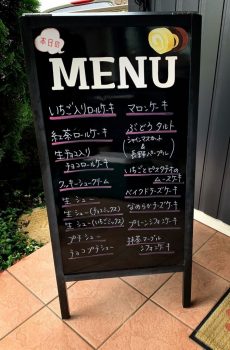 本日の
MENU
いちご入りロールケーキ
紅茶ロールケーキ
生チョコ入り
チョコロールケーキ
クッキーシュークリーム
生シュー
生シュー(チョコミックス)
生シュー(いちごミックス)
プチシュー
チョコプチシュー
マロンケーキ
ぶどうタルト
(シャインマスカット
&
長野パープル)
いちごとピスタチオの
ムースケーキ
ベイクドチーズケーキ
なめらかチーズケーキ
プレーンシフォンケーキ
抹茶マーブル
シフォンケーキ